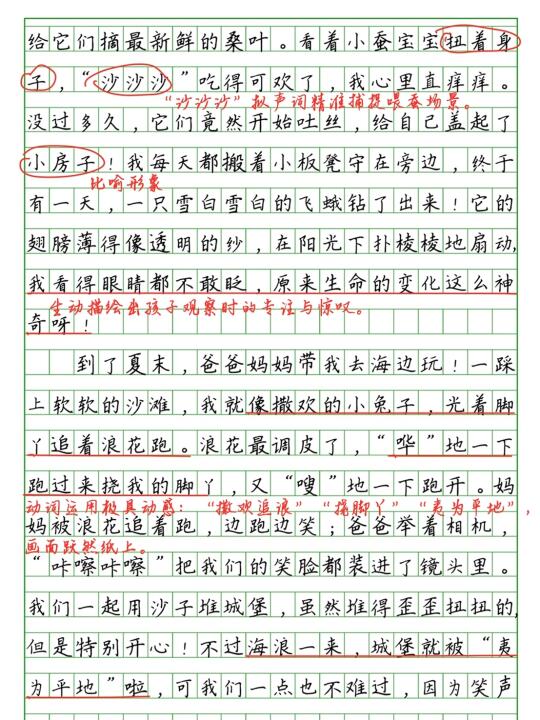 给它们摘最新鲜的桑叶。看着小蚕宝宝扭着身
子，“沙沙沙”吃得可欢了，我心里直痒痒。
“沙沙沙”拟声词精准捕捉喂蚕场景。
没过多久，它们竟然开始吐丝，给自己盖起了
小房子！我每天都搬着小板凳守在旁边，终于
比喻形象
有一天，一只雪白雪白的飞蛾钻了出来！它的
翅膀薄得像透明的纱，在阳光下扑棱棱地扇动，
我看得眼睛都不敢眨，原来生命的变化这么神
生动描绘出孩子观察时的专注与惊叹。
奇呀！
到了夏末，爸爸妈妈带我去海边玩！一踩
上软软的沙滩，我就像撒欢的小兔子，光着脚
丫追着浪花跑。浪花最调皮了，“哗”地一下
跑过来挠我的脚丫，又“嗖”地一下跑开。妈
动词运用极具动感：“撒欢追浪”“挠脚丫”“夷为平地”，
妈被浪花追着跑，边跑边笑；爸爸举着相机，
画面跃然纸上。
“咔嚓咔嚓”把我们的笑脸都装进了镜头里。
我们一起用沙子堆城堡，虽然堆得歪歪扭扭的，
但是特别开心！不过海浪一来，城堡就被“夷
为平地”啦，可我们一点也不难过，因为笑声